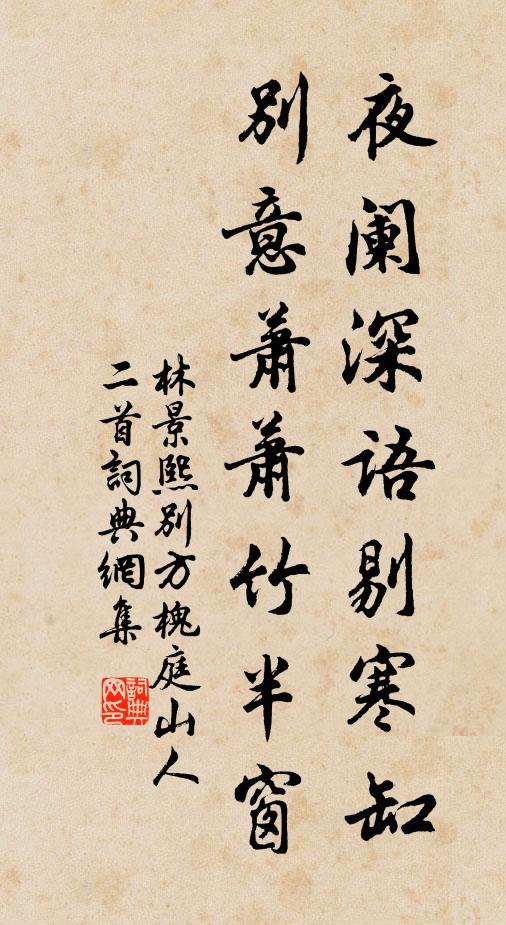 夜阑深语剔寒缸
别意萧萧竹半窗
林景熙别方槐庭山人
二首詞典網集
詞典
网印